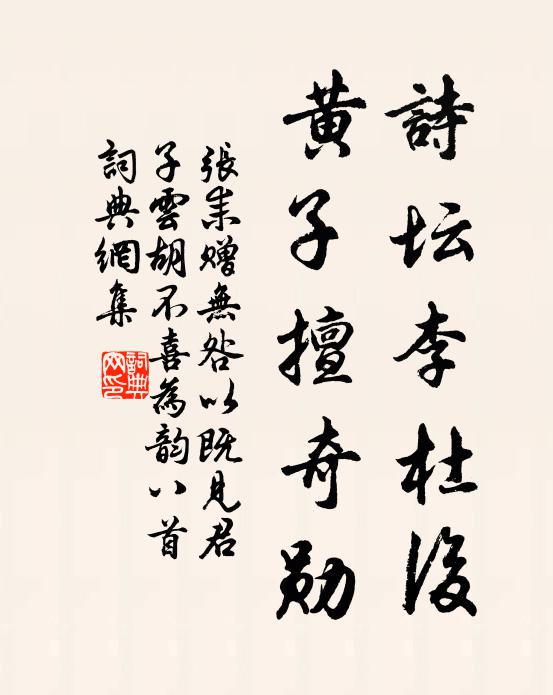 詩坛李杜後
黄子擅奇勋
張耒赠無咎以既見君
子雲胡不喜為韵八首
詞典網集
詞典網印